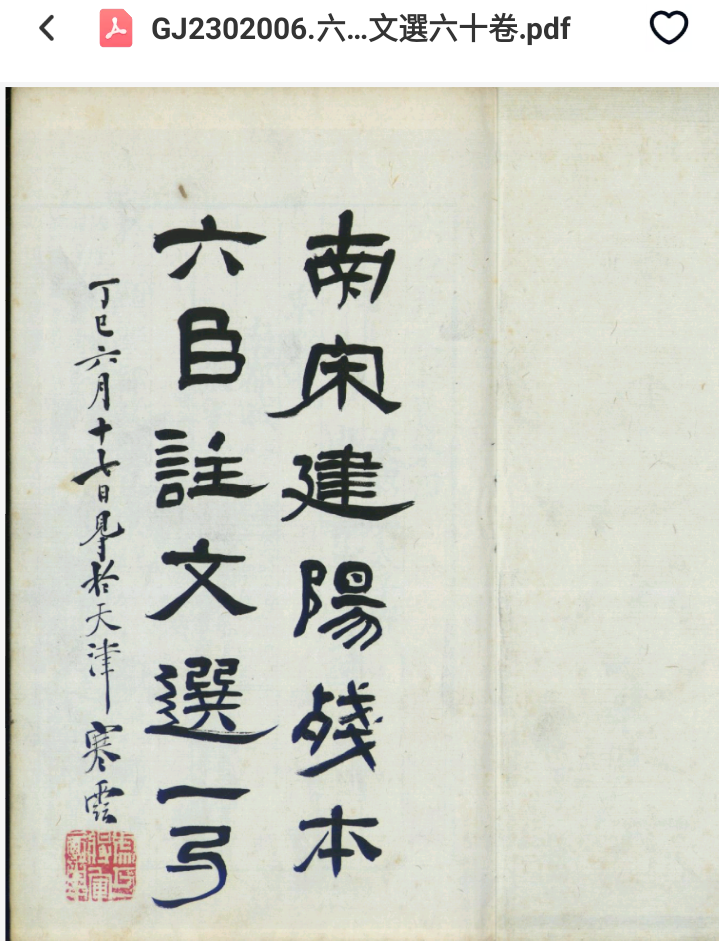 GJ2302006.六...文選六十卷.pdf
南宋建陽殘本
六臣註文選一弓
丁巳六月十七日㝵於天津 寒雲